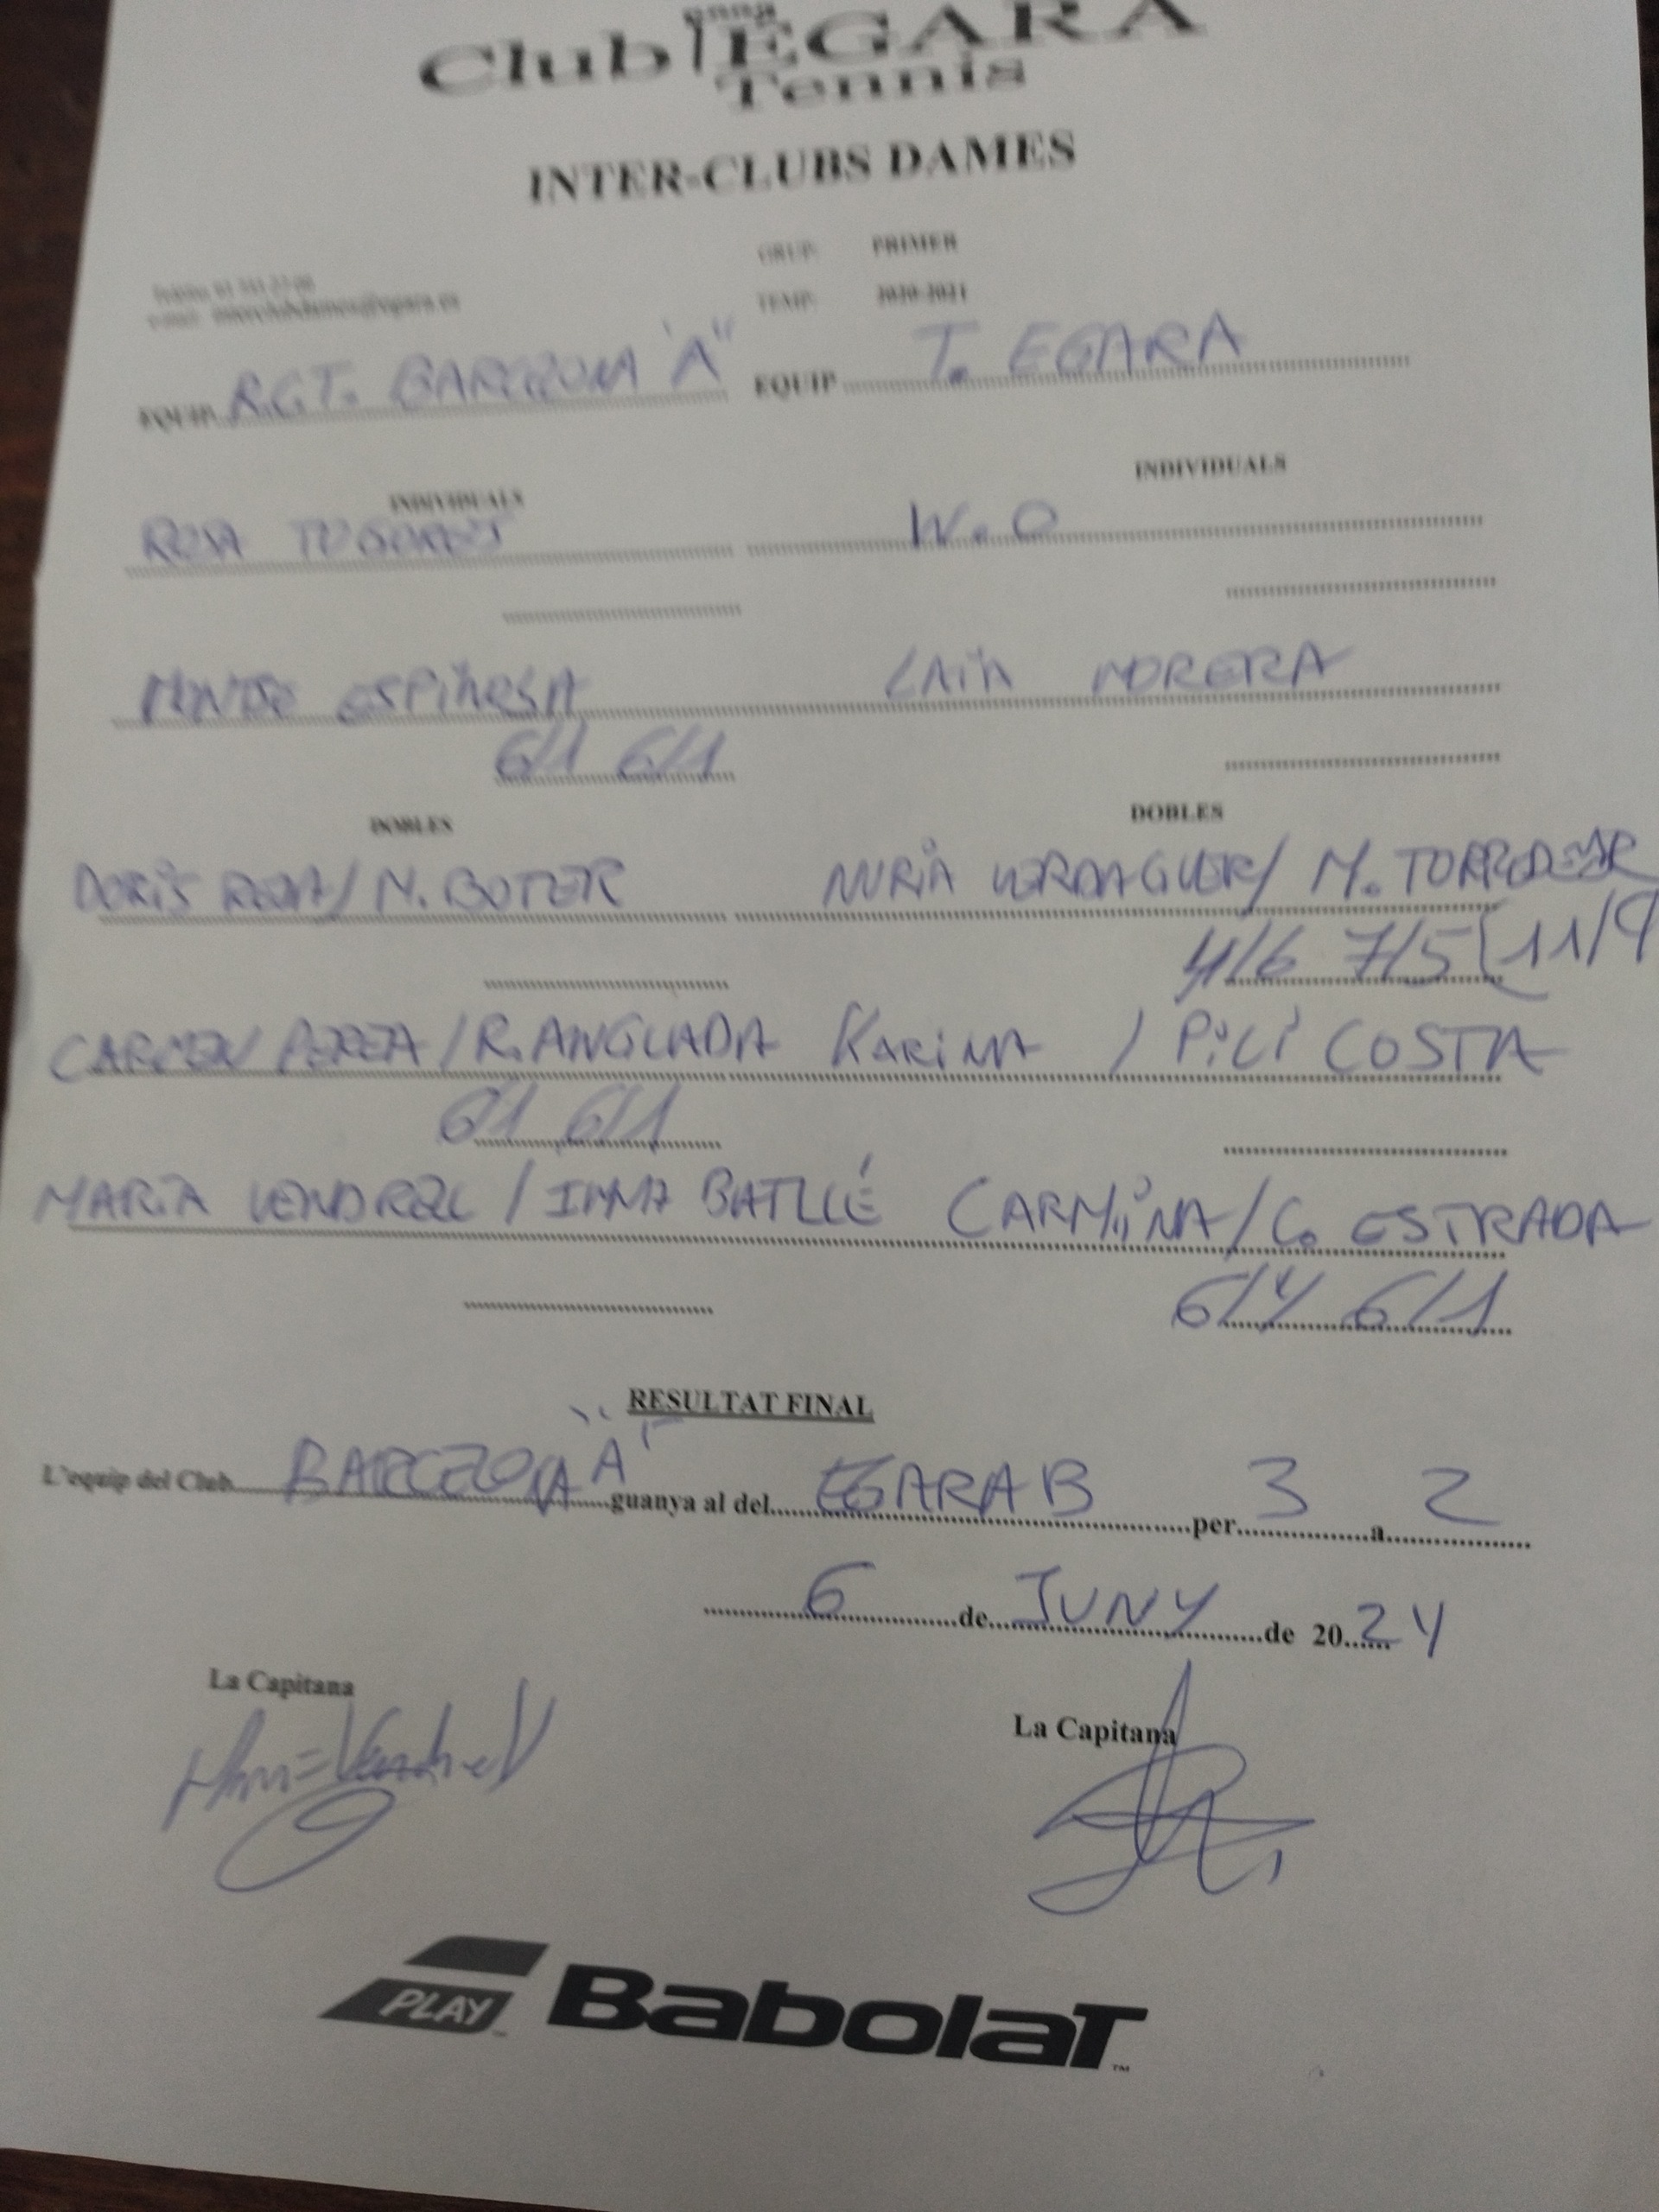 Club EGARA
Tennis
INTER-CLUBS DAMES
GRUP: PRIMER
TEMP: 2020-2021
e-mail: interclubdames@egara.es
EQUIP R.C.T. BARCELONA "A" EQUIP T. EGARA
INDIVIDUALS INDIVIDUALS
ROSA W.O
MONTSE ESPINOSA LAIA MORERA
6/1 6/1
DOBLES DOBLES
DORIS ROSA / M. BOTER NURIA VERDAGUER / M.
4/6 7/5 (11/9
CARMEN PEREA / R. ANGLADA KARINA / PILI COSTA
6/1 6/1
MARIA VENDRELL / IMMA BATLLÉ CARMINA / C. ESTRADA
6/4 6/1
RESULTAT FINAL
L'equip del Club BARCELONA "A" guanya al del EGARA B per 3 a 2
6 de JUNY de 2024
La Capitana La Capitana
Maria Vendrell
PLAY BabolaT™